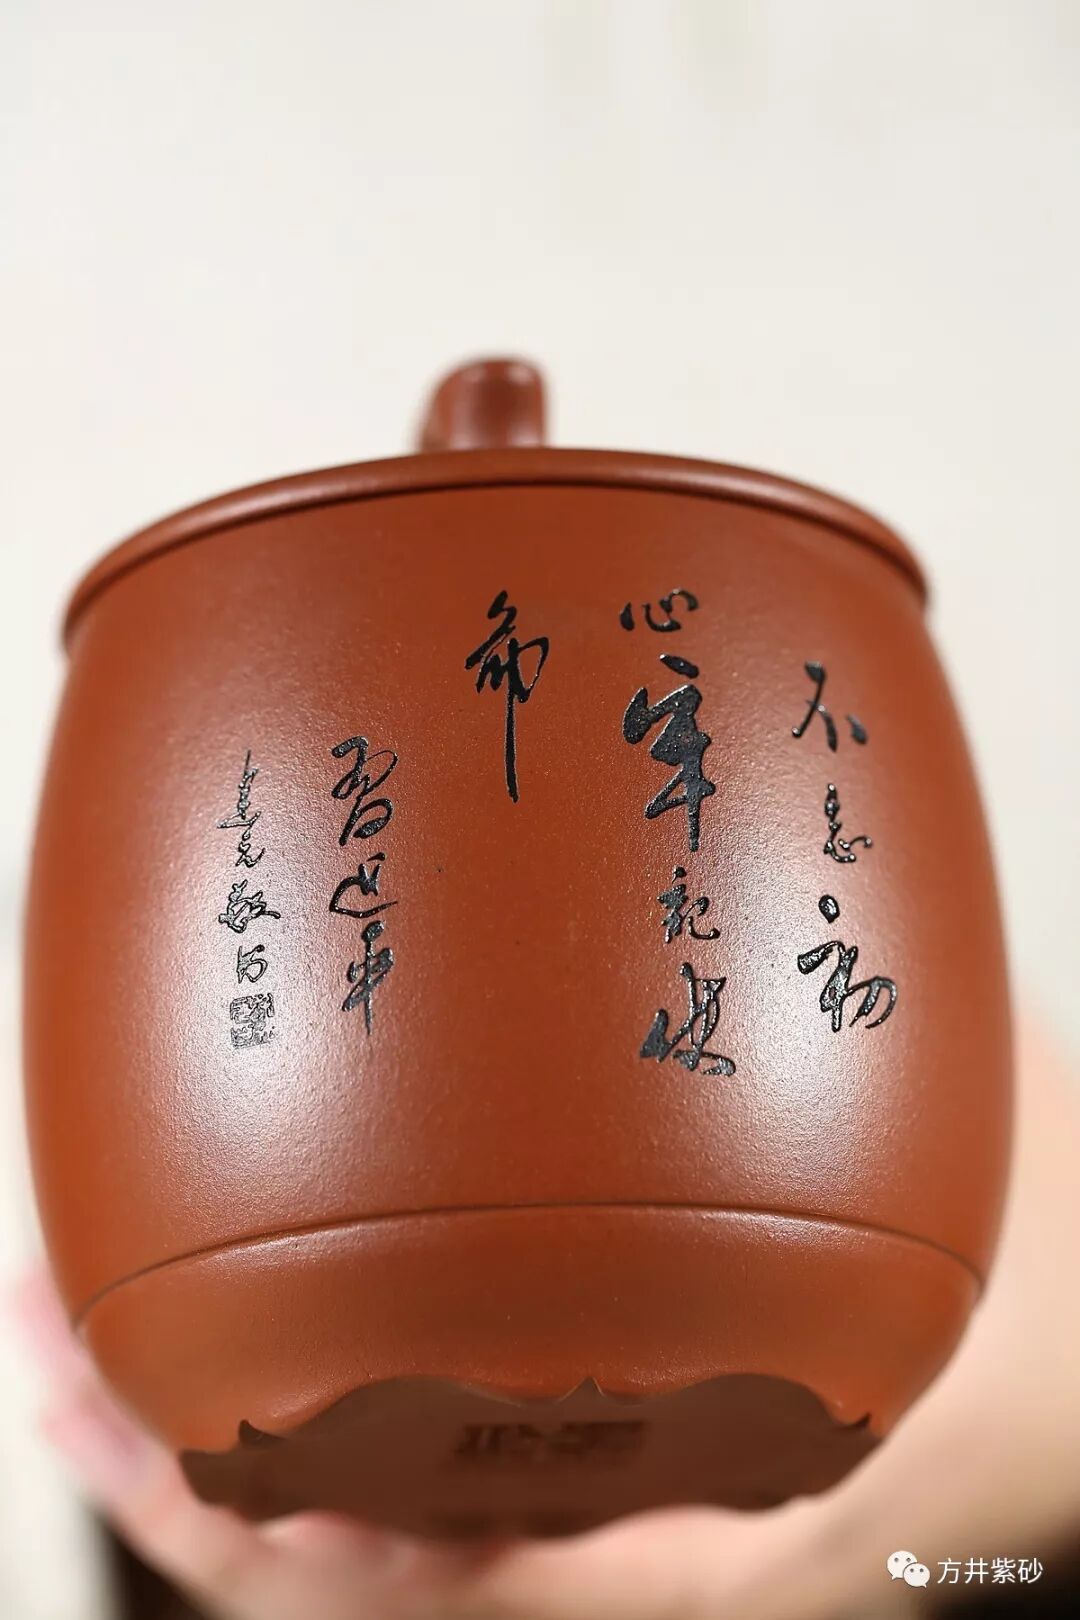 不忘初
心牢记使
命
习近平
建元敬书
方井紫砂